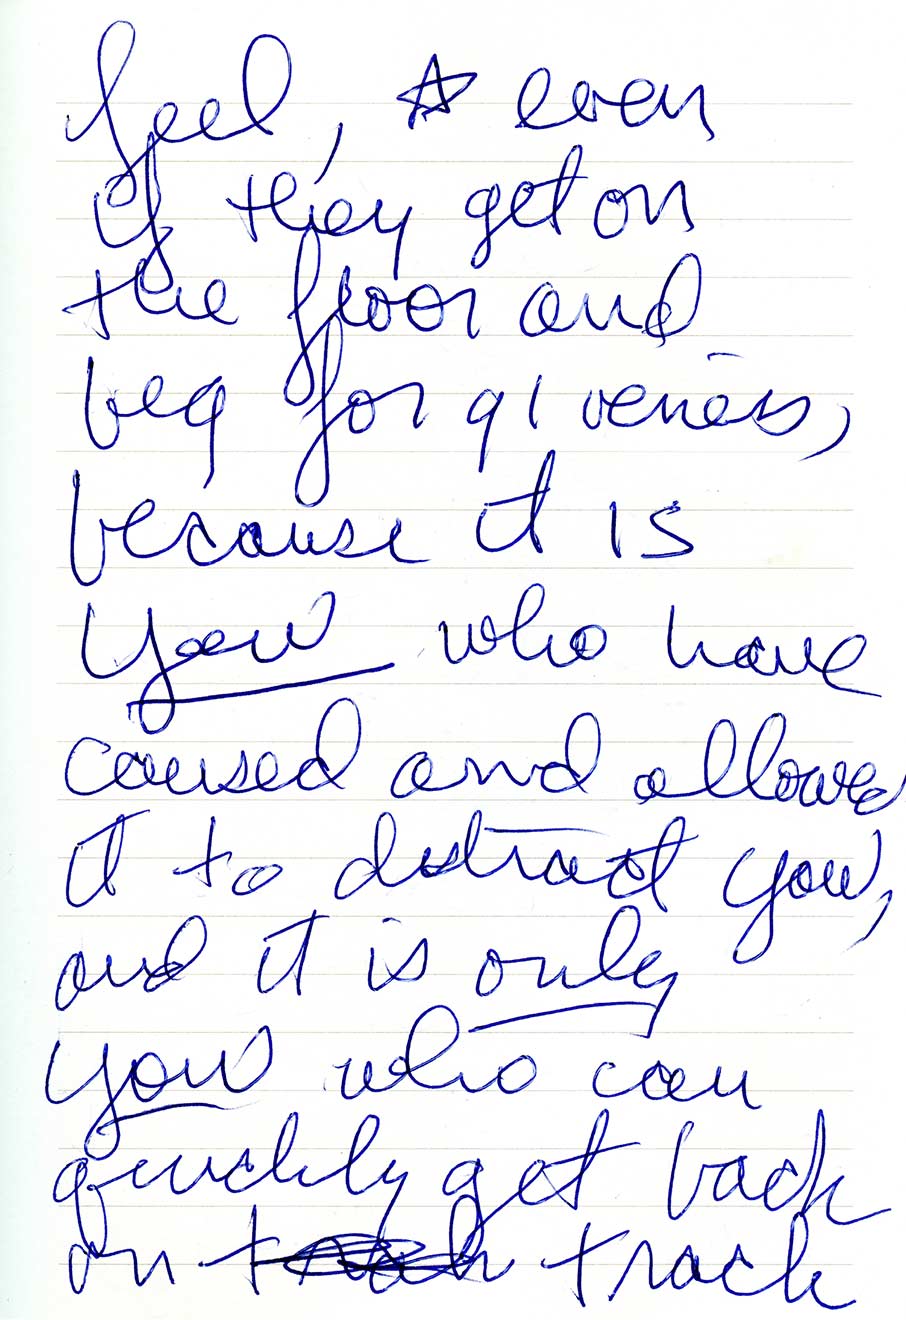 feel, ☆ even
if they get on
the floor and
beg forgiveness,
because it is
you who have
caused and allowed
it to distract you,
and it is only
you who can
quickly get back
on track